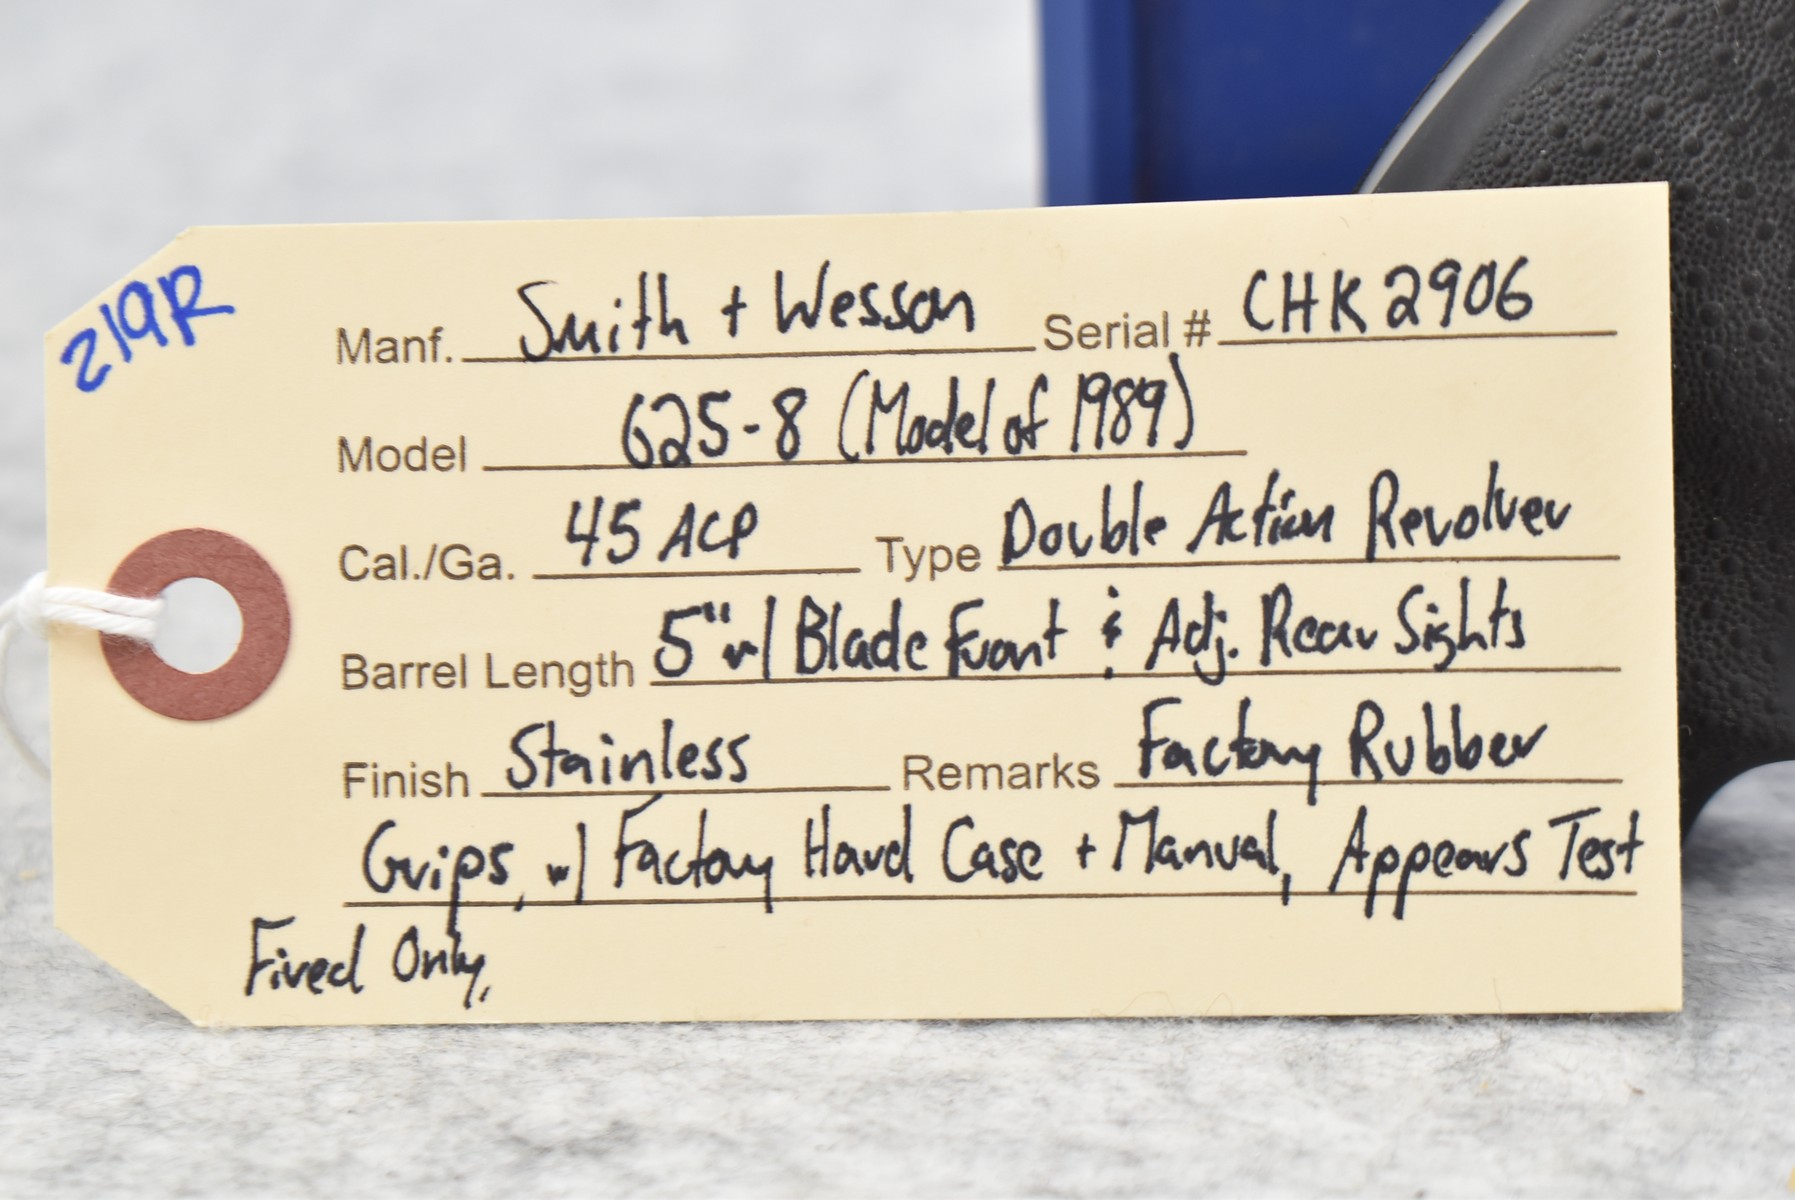 219R
Manf. Smith + Wesson Serial # CHK2906
Model 625-8 (Model of 1989)
Cal./Ga. 45 ACP Type Double Action Revolver
Barrel Length 5" w/ Blade Front & Adj. Rear Sights
Finish Stainless Remarks Factory Rubber
Grips, w/ Factory Hard Case + Manual, Appears Test
Fired Only,